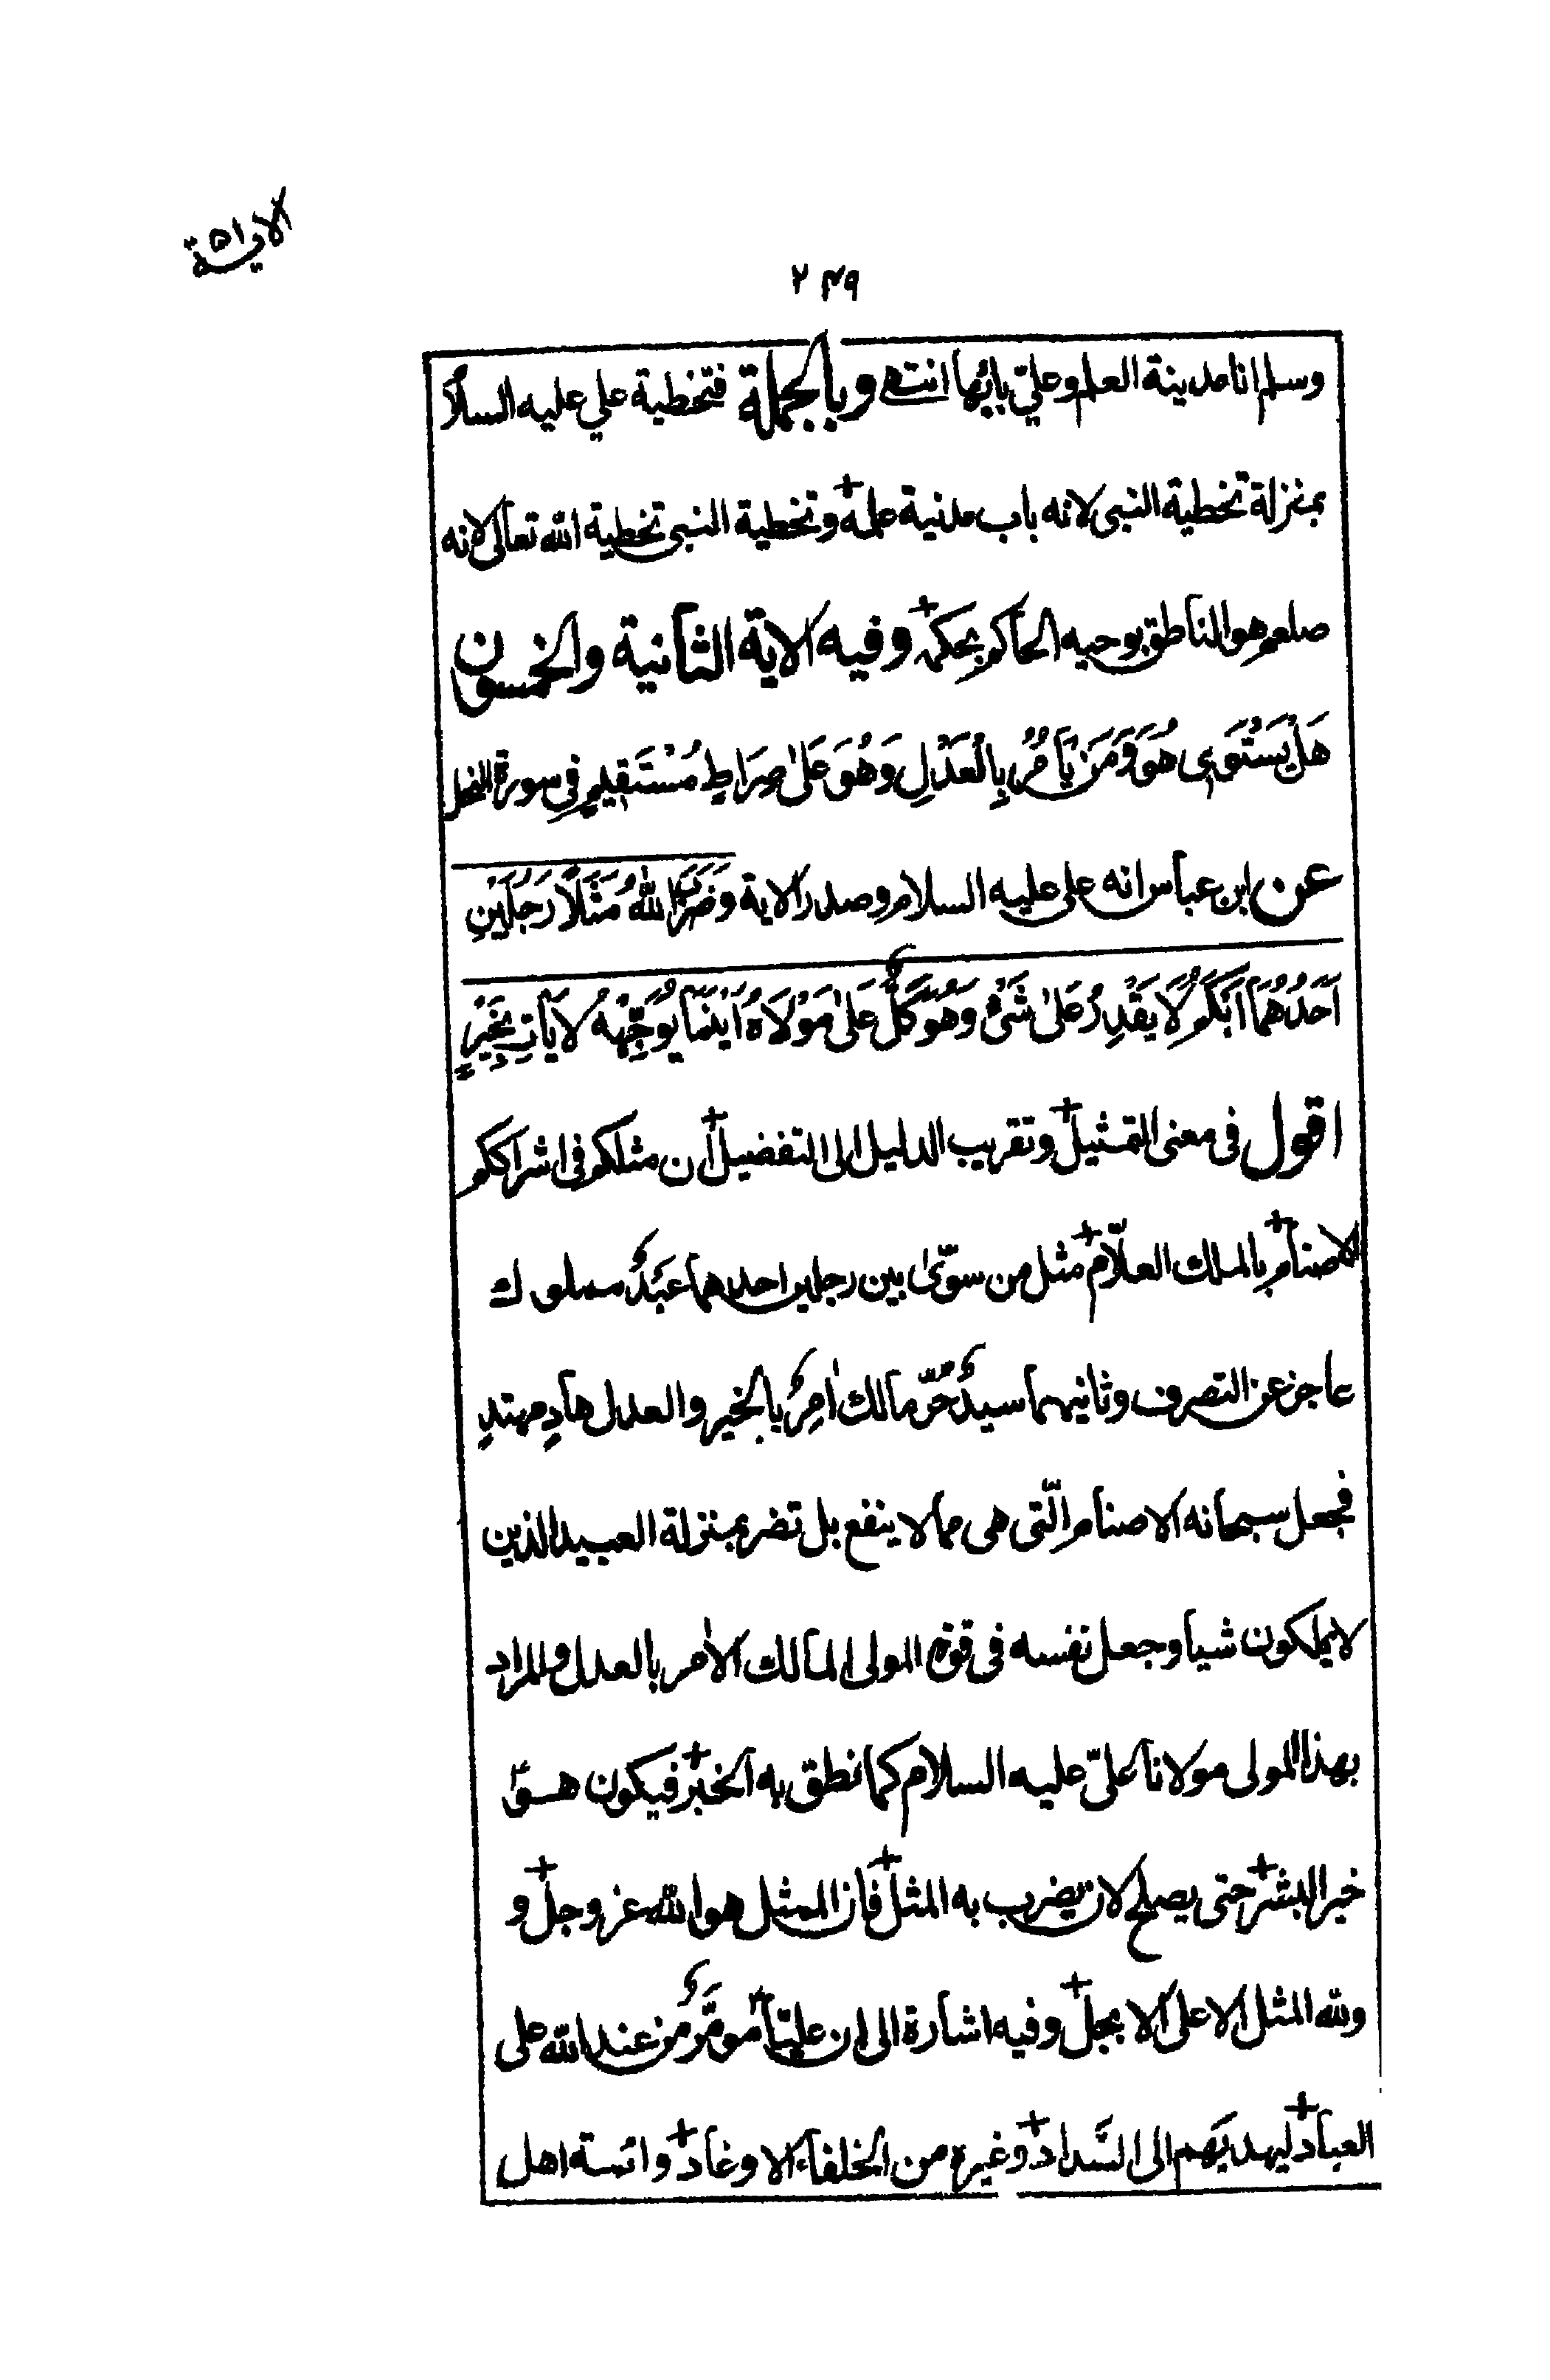 الاية ٥١
٢٤٩
وسلم انا مدينة العلم وعليّ بابُها انتهى وبالجملة فتخطية علي عليه السلا
بمنزلة تخطية النبى لانه باب مدنية علمه وتخطية النبى تخطية الله تعالى لانه
صلعم هو الناطق بوحيه الحاكم بحكمه وفيه الاية الثانية والخمسون
هَلْ يَسْتَوِى هُوَ وَمَنْ يَأْمُرُ بِالْعَدْلِ وَهُوَ عَلىٰ صِرَاطٍ مُسْتَقِيمٍ فى سورة النحل
عن ابن عباس انه على عليه السلام وصدر الاية وَضَرَبَ اللهُ مَثَلًا رَجُلَيْنِ
اَحَدُهُمَا اَبْكَمُ لَا يَقْدِرُ عَلىٰ شَىْءٍ وَهُوَ كَلٌّ عَلىٰ مَوْلَاهُ اَيْنَمَا يُوَجِّهْهُ لا يَأْتِ بِخَيْرٍ
اقول فى معنى التمثيل وتقريب الدليل الى التفضيل ان مثلكم فى اشراككم
الاصنام بالملك العلّام مثل من سوّىٰ بين رجلين احدهما عَبْدٌ مملوك
عاجز عن التصرف وثانيهما سيدٌ حُرّ مالك اٰمِرٌ بالخير والعدل هادٍ مهتدٍ
فجعل سبحانه الاصنام الّتى هى مما لا ينفع بل تضر بمنزلة العبيد الذين
لا يملكون شيا وجعل نفسه فى قوة المولى المالك الاٰمر بالعدل والمراد
بهذا المولى مولانا علىّ عليه السلام كما نطق به الخبر فيكون هو
خير البشر حتى يصلح لان يضرب به المثل فان الممثل هو الله عز وجل و
ولله المثل الاعلى الاجل وفيه اشارة الى ان عليّا مؤمّرٌ من عند الله على
العباد ليهديهم الى السّداد وغيره من الخلفاء الاوغاد وائمة اهل